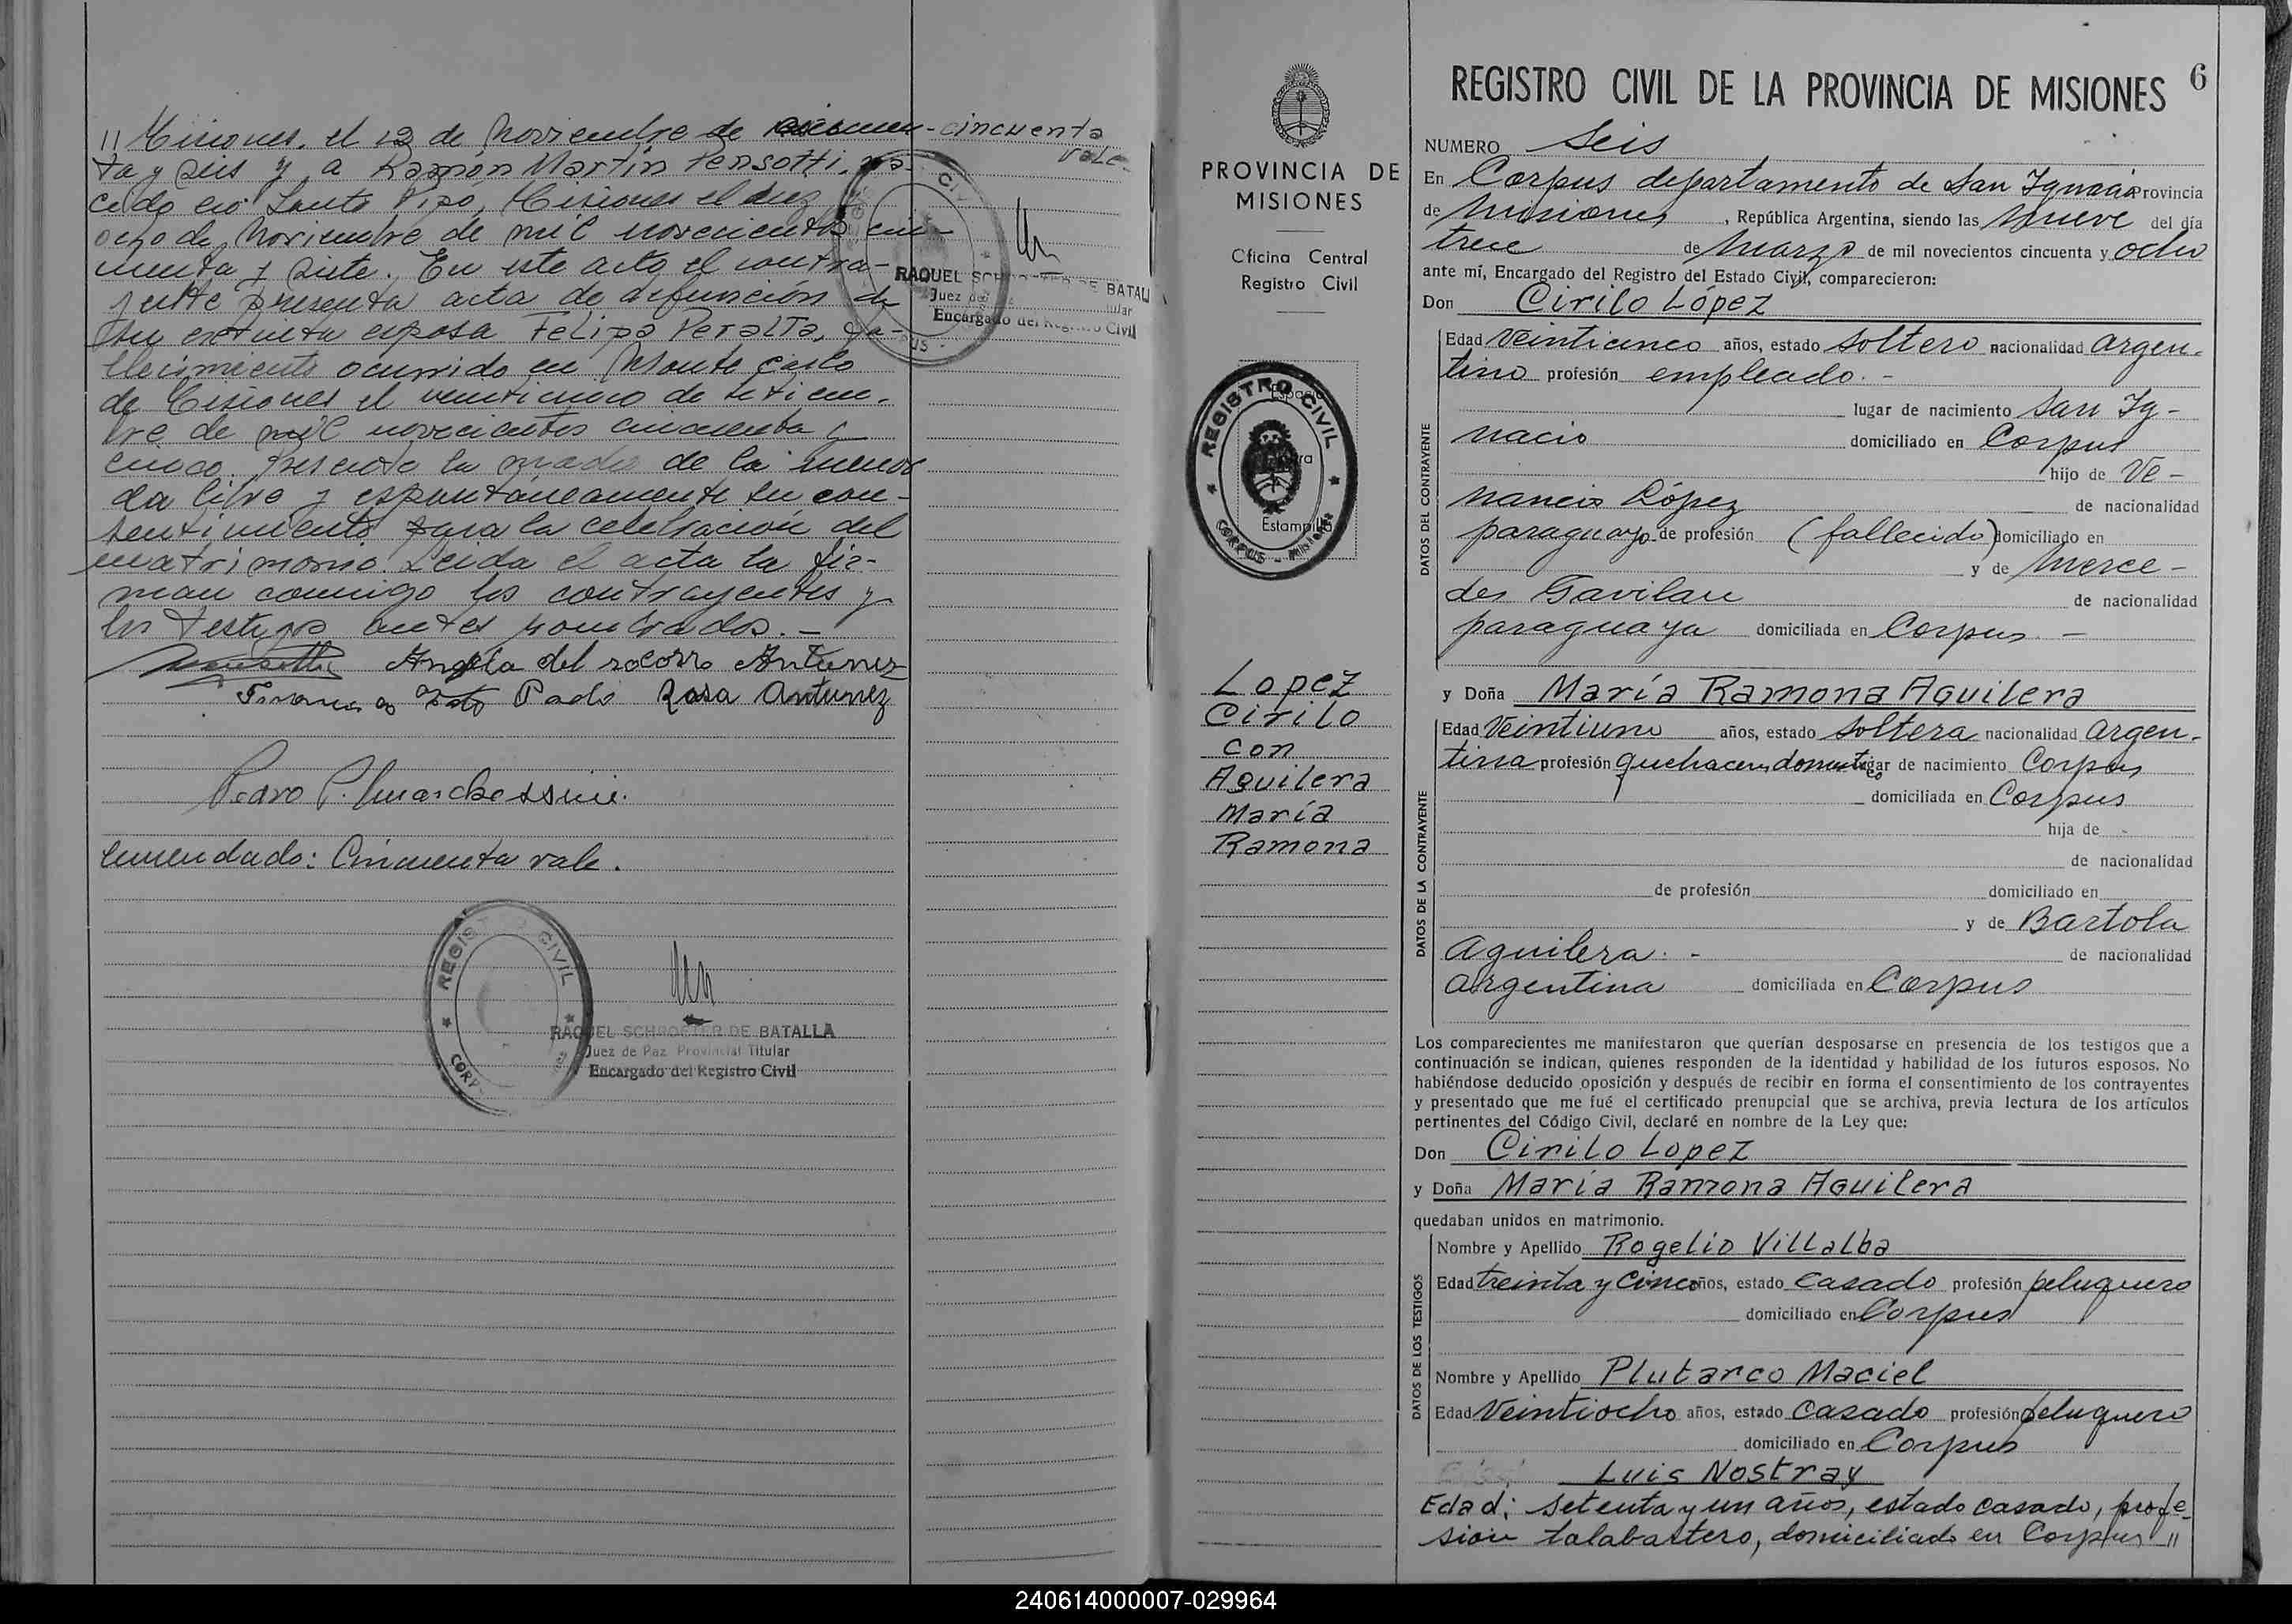 " Misiones, el 12 de Noviembre de cincuen- cincuenta
vale
ta y seis y a Ramón Martín Pensotti, na-
cido en Santo Pipó, Misiones el diez
ocho de Noviembre de mil novecientos cin-
cuenta y siete. En este acto el contra-
yente presenta acta de defunción de
su extinta esposa Felipa Peralta, fa-
llecimiento ocurrido en Monte Carlo
de Misiones el veinticinco de setiem-
bre de mil novecientos cincuenta y
cinco. Presente la madre de la menor
da libre y espontáneamente su con-
sentimiento para la celebración del
matrimonio. Leida el acta la fir-
man conmigo los contrayentes y
los testigos antes nombrados. -
Angela del socorro Antunez
Rosa Antunez
Pedro P. Marchessini.
Enmendado: Cincuenta vale.
REGISTRO CIVIL
CORPUS
RAQUEL SCHROETER DE BATALLA
Juez de Paz Provincial Titular
Encargado del Registro Civil
RAQUEL SCHROETER DE BATALLA
Juez de Titular
Encargado del Registro Civil
PROVINCIA DE
MISIONES
Oficina Central
Registro Civil
REGISTRO CIVIL
Espacio
para
Estampilla
CORPUS - Misiones
Lopez
Cirilo
con
Aguilera
María
Ramona
REGISTRO CIVIL DE LA PROVINCIA DE MISIONES 6
NUMERO Seis
En Corpus departamento de San Ignacio Provincia
de Misiones, República Argentina, siendo las Nueve del día
trece de Marzo de mil novecientos cincuenta y ocho
ante mí, Encargado del Registro del Estado Civil, comparecieron:
Don Cirilo López
DATOS DEL CONTRAYENTE
Edad Veinticinco años, estado soltero nacionalidad argen-
tino profesión empleado. -
lugar de nacimiento San Ig-
nacio domiciliado en Corpus
hijo de Ve-
nancio López de nacionalidad
paraguayo de profesión (fallecido) domiciliado en
y de Merce-
des Gavilan de nacionalidad
paraguaya domiciliada en Corpus. -
y Doña María Ramona Aguilera
DATOS DE LA CONTRAYENTE
Edad Veintiuno años, estado soltera nacionalidad argen-
tina profesión quehaceres domésticos lugar de nacimiento Corpus
domiciliada en Corpus
hija de -
de nacionalidad
de profesión domiciliado en
y de Bartola
Aguilera. - de nacionalidad
argentina domiciliada en Corpus
Los comparecientes me manifestaron que querían desposarse en presencia de los testigos que a
continuación se indican, quienes responden de la identidad y habilidad de los futuros esposos. No
habiéndose deducido oposición y después de recibir en forma el consentimiento de los contrayentes
y presentado que me fué el certificado prenupcial que se archiva, previa lectura de los artículos
pertinentes del Código Civil, declaré en nombre de la Ley que:
Don Cirilo Lopez
y Doña María Ramona Aguilera
quedaban unidos en matrimonio.
DATOS DE LOS TESTIGOS
Nombre y Apellido Rogelio Villalba
Edad treinta y cinco años, estado Casado profesión peluquero
domiciliado en Corpus
Nombre y Apellido Plutarco Maciel
Edad Veintiocho años, estado Casado profesión peluquero
domiciliado en Corpus
Luis Nostray
Edad: setenta y un años, estado casado, profe-
sión talabartero, domiciliado en Corpus "
240614000007-029964